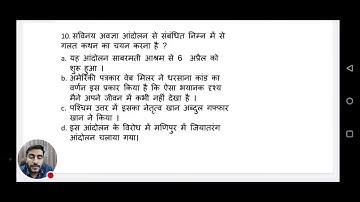 10. सविनय अवज्ञा आंदोलन से संबंधित निम्न में से
गलत कथन का चयन करना है ?
a. यह आंदोलन साबरमती आश्रम से 6 अप्रैल को
शुरू हुआ ।
b. अमेरिकी पत्रकार वेब मिलर ने धरसाना कांड का
वर्णन इस प्रकार किया है कि ऐसा भयानक दृश्य
मैंने अपने जीवन में कभी नहीं देखा है ।
c. पश्चिम उत्तर में इसका नेतृत्व खान अब्दुल गफ्फार
खान ने किया ।
d. इस आंदोलन के विरोध में मणिपुर में जियातरंग
आंदोलन चलाया गया।